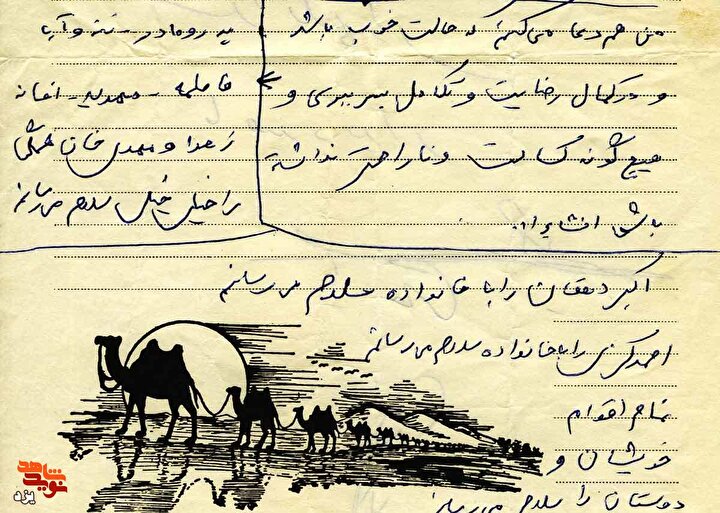 من هم دعا می‌کنم که حالت خوب باشد
و در کمال رضایت و تکامل بسر ببری و
هیچ گونه کسالت و ناراحتی نداشته
باشی انشاءاله.
پدر و مادر - ننه و آبا
فاطمه - صمدیه - افسانه
زهرا و مهدی خان همگی
را خیلی خیلی سلام میرسانم
اکبر دهقان را با خانواده سلام میرسانم
احمد را با خانواده سلام میرسانم
تمام اقوام
خویشان و
دوستان را سلام میرسانم
نوید شاهد
یزد